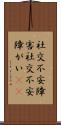 社交不安障
害社交不安
障がい((